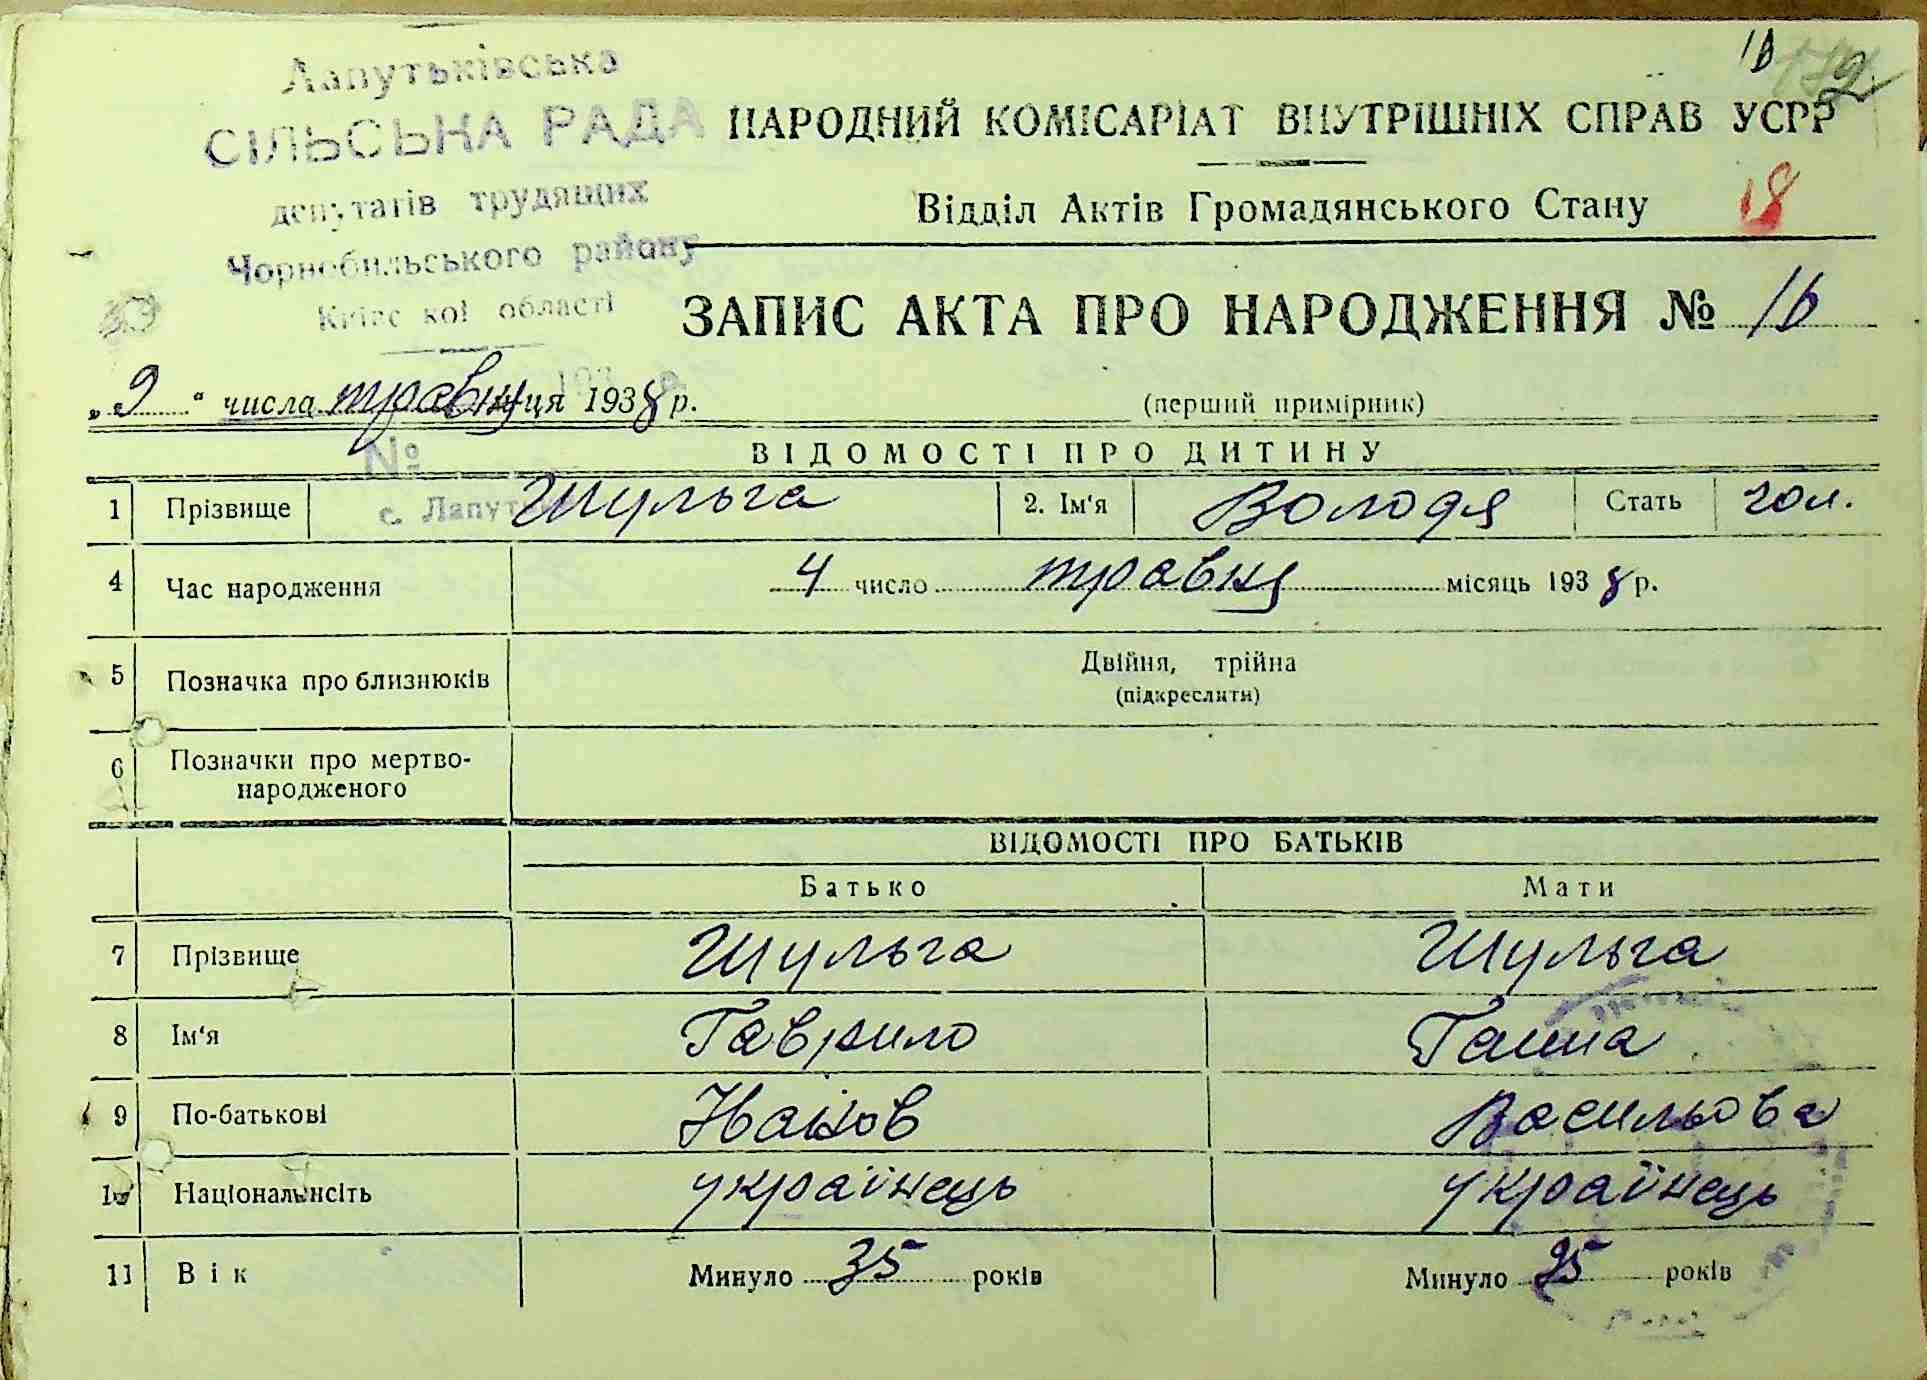 16
Лапутьківська
СІЛЬСЬКА РАДА
депутатів трудящих
Чорнобильського району
Київської області
НАРОДНИЙ КОМІСАРІАТ ВНУТРІШНІХ СПРАВ УСРР
Відділ Актів Громадянського Стану 18
ЗАПИС АКТА ПРО НАРОДЖЕННЯ № 16
„9“ числа травня місяця 1938 р. (перший примірник)
№
ВІДОМОСТІ ПРО ДИТИНУ
1 Прізвище с. Шульга 2. Ім'я Володя Стать чол.
4 Час народження 4 число травня місяць 1938 р.
5 Позначка про близнюків Двійня, трійна
(підкреслити)
6 Позначки про мертво-
народженого
ВІДОМОСТІ ПРО БАТЬКІВ
Батько Мати
7 Прізвище Шульга Шульга
8 Ім'я Гаврило Ганна
9 По-батькові Іванов Васильова
10 Національнсіть українець українець
11 Вік Минуло 35 років Минуло 35 років